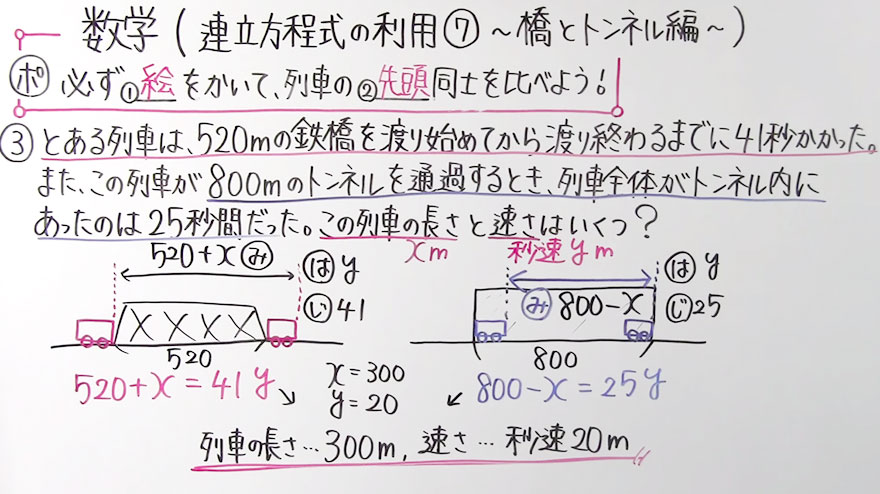 数学(連立方程式の利用⑦ ～橋とトンネル編～)
ポ 必ず①絵をかいて、列車の②先頭同士を比べよう!
③ とある列車は、520mの鉄橋を渡り始めてから渡り終わるまでに41秒かかった。
また、この列車が800mのトンネルを通過するとき、列車全体がトンネル内に
あったのは25秒間だった。この列車の長さと速さはいくつ?
xm 秒速ym
520+x み は y じ 41
520
み 800-x は y じ 25
800
520+x=41y
x=300
y=20
800-x=25y
列車の長さ…300m, 速さ…秒速20m